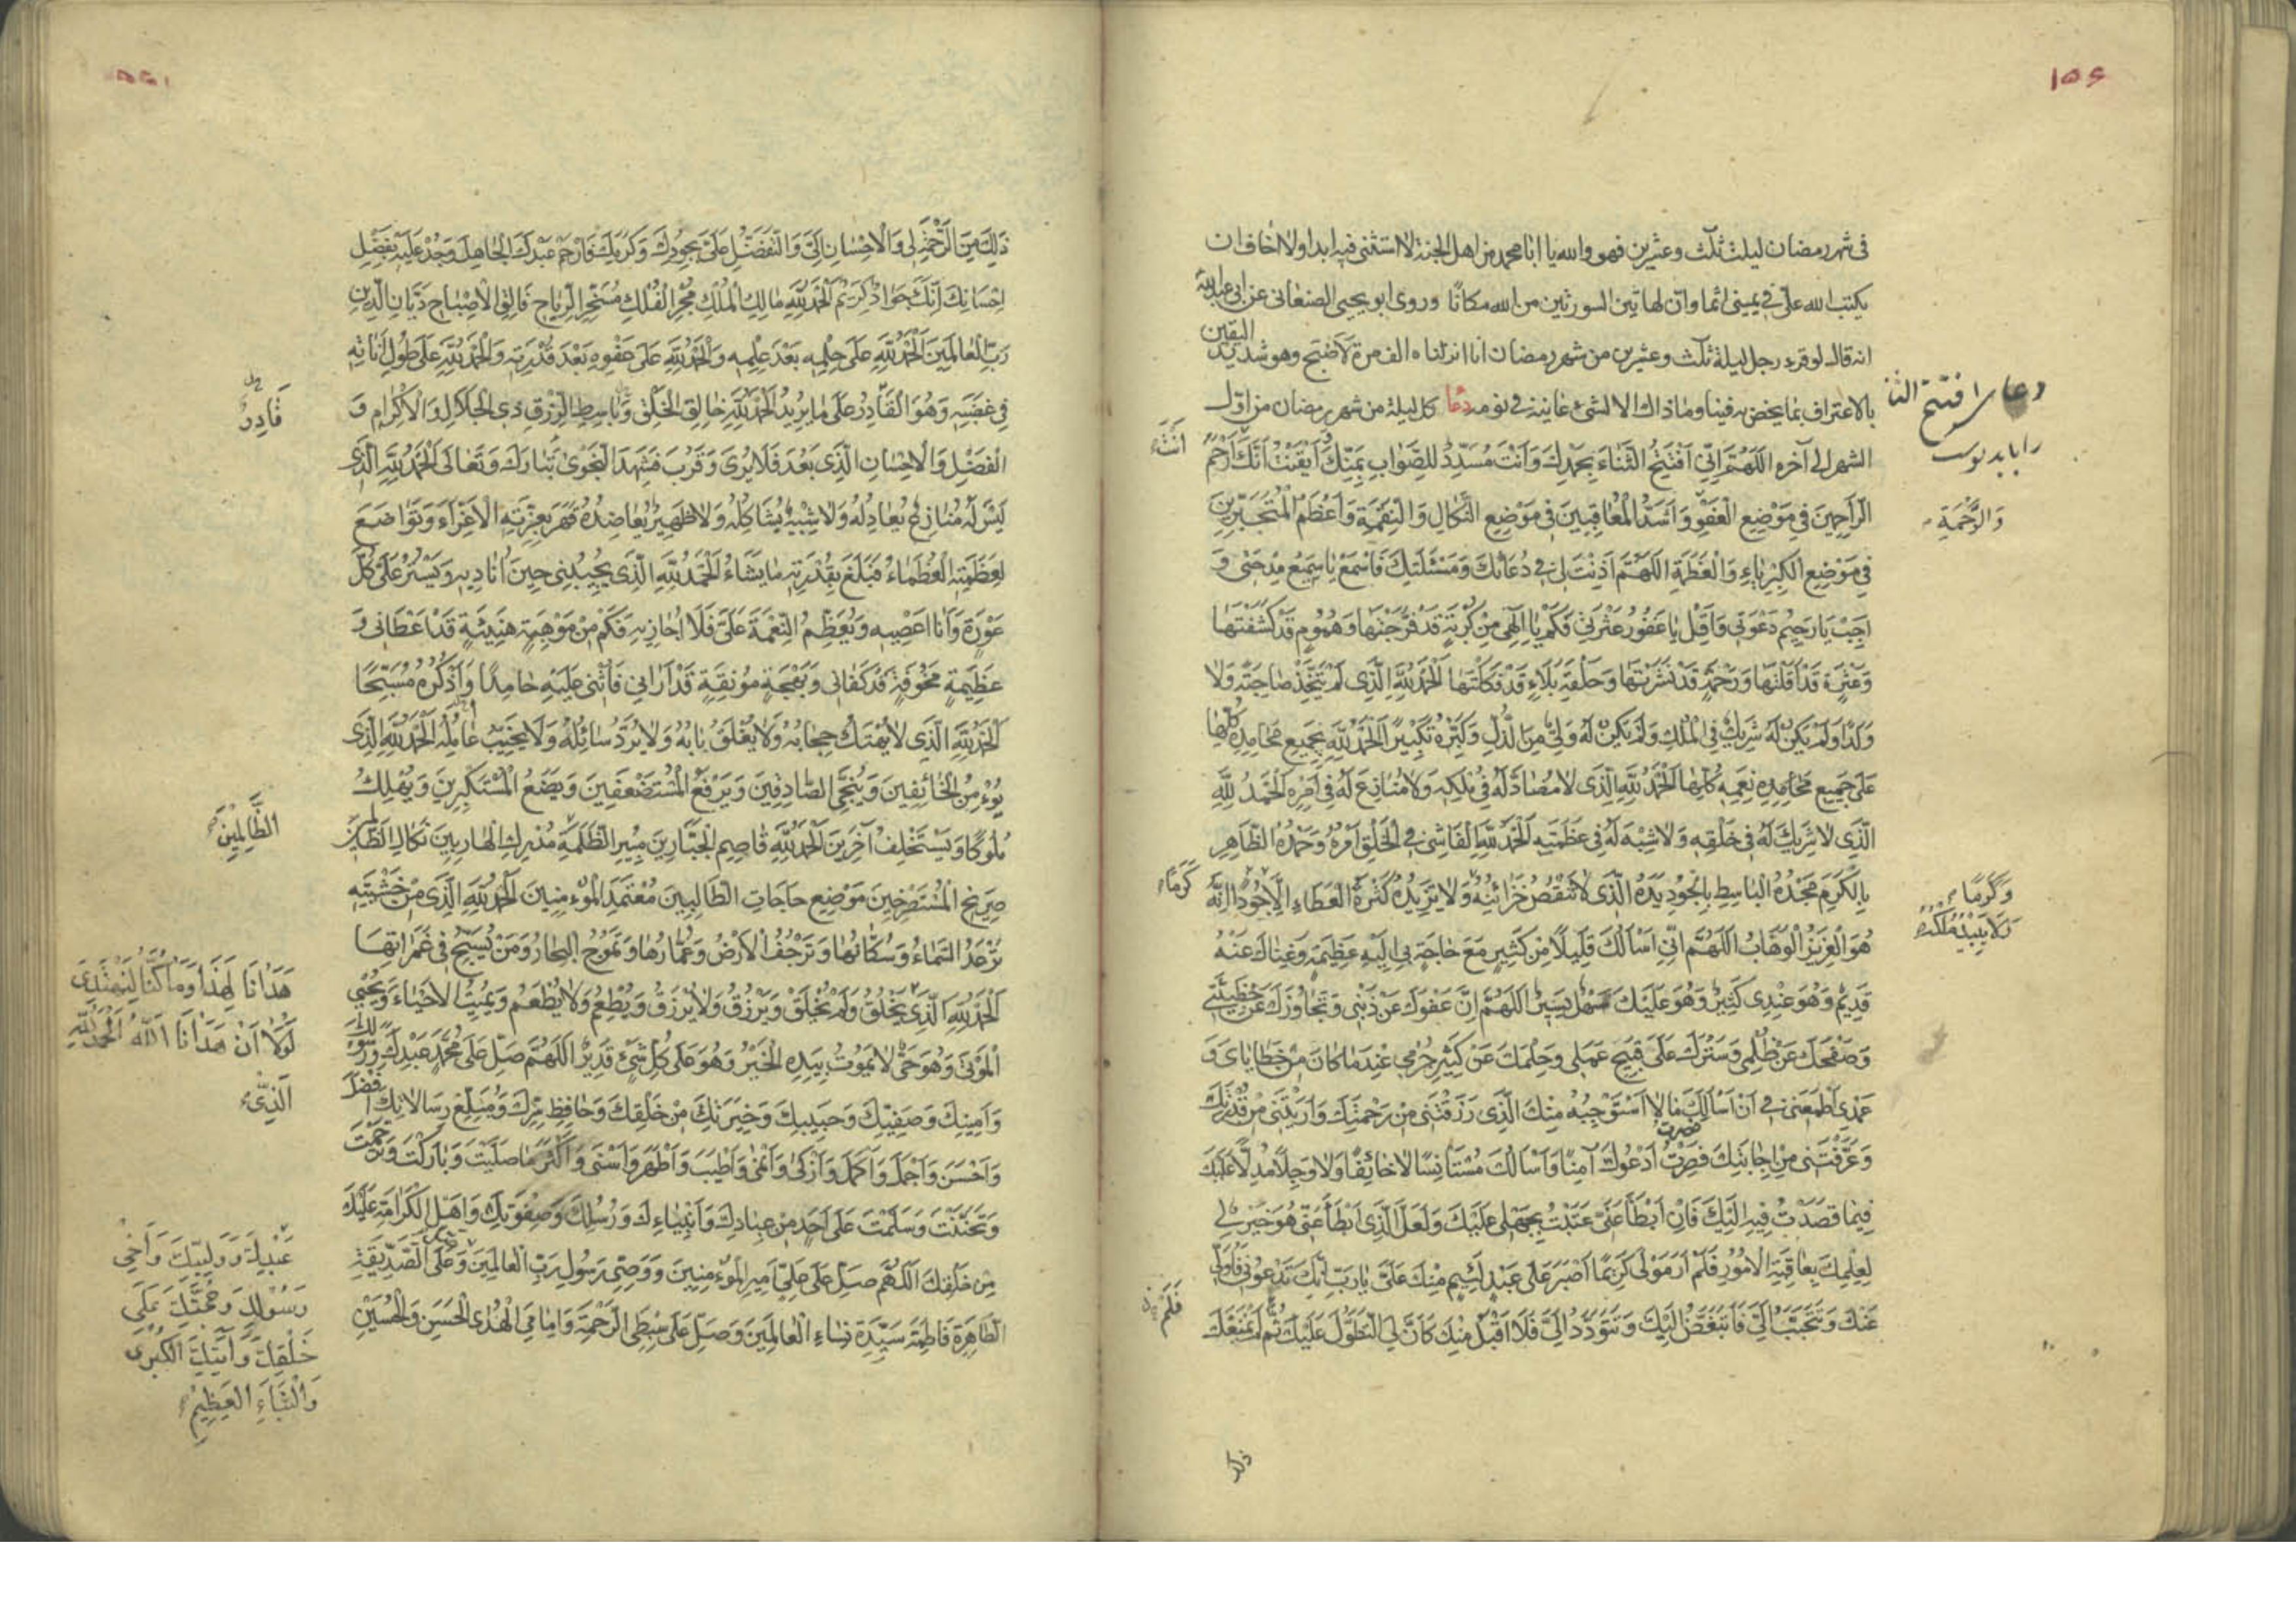 ۱۵۶
فى شهر رمضان ليلت ثلث وعشرين فهو والله يا ابا محمد من اهل الجنة لا استثنى فيه ابدا ولا اخاف ان
يكتب الله علىّ فى يمينى اثما وانّ لهاتين السورتين من الله مكانًا وروى ابو يحيى الصنعانى عن ابى عبد الله
انه قال لو قرء رجل ليلة ثلث وعشرين من شهر رمضان انا انزلناه الف مرة لاصبح وهو شديد اليقين
بالاعتراف بما يخص به فينا وما ذاك الا لشئ عاينه فى نومه دعا كل ليلة من شهر رمضان من اول
الشهر الى آخره اَللّٰهُمَّ اِنِّى اَفْتَتِحُ الثَّنَاءَ بِحَمْدِكَ وَاَنْتَ مُسَدِّدٌ لِلصَّوَابِ بِمَنِّكَ اَيْقَنْتُ اَنَّكَ اَرْحَمُ
الرَّاحِمِينَ فِى مَوْضِعِ الْعَفْوِ وَاَشَدُّ الْمُعَاقِبِينَ فِى مَوْضِعِ النَّكَالِ وَالنَّقِمَةِ وَاَعْظَمُ الْمُتَجَبِّرِينَ
فِى مَوْضِعِ الْكِبْرِيَاءِ وَالْعَظَمَةِ اَللّٰهُمَّ اَذِنْتَ لِى فِى دُعَائِكَ وَمَسْئَلَتِكَ فَاسْمَعْ يَا سَمِيعُ مِدْحَتِى وَ
اَجِبْ يَا رَحِيمُ دَعْوَتِى وَاَقِلْ يَا غَفُورُ عَثْرَتِى فَكَمْ يَا اِلٰهِى مِنْ كُرْبَةٍ قَدْ فَرَّجْتَهَا وَهُمُومٍ قَدْ كَشَفْتَهَا
وَعَثْرَةٍ قَدْ اَقَلْتَهَا وَرَحْمَةٍ قَدْ نَشَرْتَهَا وَحَلْقَةِ بَلَاءٍ قَدْ فَكَكْتَهَا اَلْحَمْدُ لِلّٰهِ الَّذِى لَمْ يَتَّخِذْ صَاحِبَةً وَلَا
وَلَدًا وَلَمْ يَكُنْ لَهُ شَرِيكٌ فِى الْمُلْكِ وَلَمْ يَكُنْ لَهُ وَلِىٌّ مِنَ الذُّلِّ وَكَبِّرْهُ تَكْبِيرًا اَلْحَمْدُ لِلّٰهِ بِجَمِيعِ مَحَامِدِهِ كُلِّهَا
عَلَى جَمِيعِ مَحَامِدِهِ نِعَمِهِ كُلِّهَا اَلْحَمْدُ لِلّٰهِ الَّذِى لَا مُضَادَّ لَهُ فِى مُلْكِهِ وَلَا مُنَازِعَ لَهُ فِى اَمْرِهِ اَلْحَمْدُ لِلّٰهِ
الَّذِى لَا شَرِيكَ لَهُ فِى خَلْقِهِ وَلَا شِبْهَ لَهُ فِى عَظَمَتِهِ اَلْحَمْدُ لِلّٰهِ الْفَاشِى فِى الْخَلْقِ اَمْرُهُ وَحَمْدُهُ الظَّاهِرِ
بِالْكَرَمِ مَجْدُهُ الْبَاسِطِ بِالْجُودِ يَدَهُ الَّذِى لَا تَنْقُصُ خَزَائِنُهُ وَلَا تَزِيدُهُ كَثْرَةُ الْعَطَاءِ اِلَّا جُودًا اِنَّهُ
هُوَ الْعَزِيزُ الْوَهَّابُ اَللّٰهُمَّ اِنِّى اَسْأَلُكَ قَلِيلًا مِنْ كَثِيرٍ مَعَ حَاجَةٍ بِى اِلَيْهِ عَظِيمَةٍ وَغِنَاكَ عَنْهُ
قَدِيمٌ وَهُوَ عِنْدِى كَثِيرٌ وَهُوَ عَلَيْكَ سَهْلٌ يَسِيرٌ اَللّٰهُمَّ اِنَّ عَفْوَكَ عَنْ ذَنْبِى وَتَجَاوُزَكَ عَنْ خَطِيئَتِى
وَصَفْحَكَ عَنْ ظُلْمِى وَسَتْرَكَ عَلَى قَبِيحِ عَمَلِى وَحِلْمَكَ عَنْ كَثِيرِ جُرْمِى عِنْدَ مَا كَانَ مِنْ خَطَايَاىَ وَ
عَمْدِى اَطْمَعَنِى فِى اَنْ اَسْأَلَكَ مَا لَا اَسْتَوْجِبُهُ مِنْكَ الَّذِى رَزَقْتَنِى مِنْ رَحْمَتِكَ وَاَرَيْتَنِى مِنْ قُدْرَتِكَ
وَعَرَّفْتَنِى مِنْ اِجَابَتِكَ فَصِرْتُ اَدْعُوكَ آمِنًا وَاَسْأَلُكَ مُسْتَأْنِسًا لَا خَائِفًا وَلَا وَجِلًا مُدِلًّا عَلَيْكَ
فِيمَا قَصَدْتُ فِيهِ اِلَيْكَ فَاِنْ اَبْطَأَ عَنِّى عَتَبْتُ بِجَهْلِى عَلَيْكَ وَلَعَلَّ الَّذِى اَبْطَأَ عَنِّى هُوَ خَيْرٌ لِى
لِعِلْمِكَ بِعَاقِبَةِ الْاُمُورِ فَلَمْ اَرَ مَوْلًى كَرِيمًا اَصْبَرَ عَلَى عَبْدٍ لَئِيمٍ مِنْكَ عَلَىَّ يَا رَبِّ اِنَّكَ تَدْعُونِى فَاُوَلِّى
عَنْكَ وَتَتَحَبَّبُ اِلَىَّ فَاَتَبَغَّضُ اِلَيْكَ وَتَتَوَدَّدُ اِلَىَّ فَلَا اَقْبَلُ مِنْكَ كَاَنَّ لِىَ التَّطَوُّلَ عَلَيْكَ ثُمَّ لَمْ يَمْنَعْكَ
دعاى افتتح الثنا
وَالرَّحْمَةِ
وَكَرَمًا
كَرَمًا
فَلَمْ
ذلك
ذٰلِكَ مِنَ الرَّحْمَةِ لِى وَالْاِحْسَانِ اِلَىَّ وَالتَّفَضُّلِ عَلَىَّ بِجُودِكَ وَكَرَمِكَ فَارْحَمْ عَبْدَكَ الْجَاهِلَ وَجُدْ عَلَيْهِ بِفَضْلِ
اِحْسَانِكَ اِنَّكَ جَوَادٌ كَرِيمٌ اَلْحَمْدُ لِلّٰهِ مَالِكِ الْمُلْكِ مُجْرِى الْفُلْكِ مُسَخِّرِ الرِّيَاحِ فَالِقِ الْاِصْبَاحِ دَيَّانِ الدِّينِ
رَبِّ الْعَالَمِينَ اَلْحَمْدُ لِلّٰهِ عَلَى حِلْمِهِ بَعْدَ عِلْمِهِ وَالْحَمْدُ لِلّٰهِ عَلَى عَفْوِهِ بَعْدَ قُدْرَتِهِ وَالْحَمْدُ لِلّٰهِ عَلَى طُولِ اَنَاتِهِ
فِى غَضَبِهِ وَهُوَ الْقَادِرُ عَلَى مَا يُرِيدُ اَلْحَمْدُ لِلّٰهِ خَالِقِ الْخَلْقِ وَبَاسِطِ الرِّزْقِ ذِى الْجَلَالِ وَالْاِكْرَامِ وَ
الْفَضْلِ وَالْاِحْسَانِ الَّذِى بَعُدَ فَلَا يُرَى وَقَرُبَ فَشَهِدَ النَّجْوَى تَبَارَكَ وَتَعَالَى اَلْحَمْدُ لِلّٰهِ الَّذِى
لَيْسَ لَهُ مُنَازِعٌ يُعَادِلُهُ وَلَا شَبِيهٌ يُشَاكِلُهُ وَلَا ظَهِيرٌ يُعَاضِدُهُ قَهَرَ بِعِزَّتِهِ الْاَعِزَّاءَ وَتَوَاضَعَ
لِعَظَمَتِهِ الْعُظَمَاءُ فَبَلَغَ بِقُدْرَتِهِ مَا يَشَاءُ اَلْحَمْدُ لِلّٰهِ الَّذِى يُجِيبُنِى حِينَ اُنَادِيهِ وَيَسْتُرُ عَلَىَّ كُلَّ
عَوْرَةٍ وَاَنَا اَعْصِيهِ وَيُعَظِّمُ النِّعْمَةَ عَلَىَّ فَلَا اُجَازِيهِ فَكَمْ مِنْ مَوْهِبَةٍ هَنِيئَةٍ قَدْ اَعْطَانِى وَ
عَظِيمَةٍ مَخُوفَةٍ قَدْ كَفَانِى وَبَهْجَةٍ مُونِقَةٍ قَدْ اَرَانِى فَاُثْنِى عَلَيْهِ حَامِدًا وَاَذْكُرُهُ مُسَبِّحًا
اَلْحَمْدُ لِلّٰهِ الَّذِى لَا يُهْتَكُ حِجَابُهُ وَلَا يُغْلَقُ بَابُهُ وَلَا يُرَدُّ سَائِلُهُ وَلَا يُخَيَّبُ عَامِلُهُ اَلْحَمْدُ لِلّٰهِ الَّذِى
يُؤْمِنُ الْخَائِفِينَ وَيُنَجِّى الصَّادِقِينَ وَيَرْفَعُ الْمُسْتَضْعَفِينَ وَيَضَعُ الْمُسْتَكْبِرِينَ وَيُهْلِكُ
مُلُوكًا وَيَسْتَخْلِفُ آخَرِينَ اَلْحَمْدُ لِلّٰهِ قَاصِمِ الْجَبَّارِينَ مُبِيرِ الظَّلَمَةِ مُدْرِكِ الْهَارِبِينَ نَكَالِ الظَّالِمِينَ
صَرِيخِ الْمُسْتَصْرِخِينَ مَوْضِعِ حَاجَاتِ الطَّالِبِينَ مُعْتَمَدِ الْمُؤْمِنِينَ اَلْحَمْدُ لِلّٰهِ الَّذِى مِنْ خَشْيَتِهِ
تَرْعَدُ السَّمَاءُ وَسُكَّانُهَا وَتَرْجُفُ الْاَرْضُ وَعُمَّارُهَا وَتَمُوجُ الْبِحَارُ وَمَنْ يُسَبِّحُ فِى غَمَرَاتِهَا
اَلْحَمْدُ لِلّٰهِ الَّذِى يَخْلُقُ وَلَمْ يُخْلَقْ وَيَرْزُقُ وَلَا يُرْزَقُ وَيُطْعِمُ وَلَا يُطْعَمُ وَيُمِيتُ الْاَحْيَاءَ وَيُحْيِى
الْمَوْتَى وَهُوَ حَىٌّ لَا يَمُوتُ بِيَدِهِ الْخَيْرُ وَهُوَ عَلَى كُلِّ شَىْءٍ قَدِيرٌ اَللّٰهُمَّ صَلِّ عَلَى مُحَمَّدٍ عَبْدِكَ وَرَسُولِكَ
وَاَمِينِكَ وَصَفِيِّكَ وَحَبِيبِكَ وَخِيَرَتِكَ مِنْ خَلْقِكَ وَحَافِظِ سِرِّكَ وَمُبَلِّغِ رِسَالَاتِكَ اَفْضَلَ
وَاَحْسَنَ وَاَجْمَلَ وَاَكْمَلَ وَاَزْكَى وَاَنْمَى وَاَطْيَبَ وَاَطْهَرَ وَاَسْنَى وَاَكْثَرَ مَا صَلَّيْتَ وَبَارَكْتَ وَتَرَحَّمْتَ
وَتَحَنَّنْتَ وَسَلَّمْتَ عَلَى اَحَدٍ مِنْ عِبَادِكَ وَاَنْبِيَاءِكَ وَرُسُلِكَ وَصِفْوَتِكَ وَاَهْلِ الْكَرَامَةِ عَلَيْكَ
مِنْ خَلْقِكَ اَللّٰهُمَّ صَلِّ عَلَى عَلِىٍّ اَمِيرِ الْمُؤْمِنِينَ وَوَصِىِّ رَسُولِ رَبِّ الْعَالَمِينَ وَعَلَى الصِّدِّيقَةِ
الطَّاهِرَةِ فَاطِمَةَ سَيِّدَةِ نِسَاءِ الْعَالَمِينَ وَصَلِّ عَلَى سِبْطَىِ الرَّحْمَةِ وَاِمَامَىِ الْهُدَى الْحَسَنِ وَالْحُسَيْنِ
قَادِرٌ
الظَّالِمِينَ
هَدَانَا لِهَذَا وَمَا كُنَّا لِنَهْتَدِىَ
لَوْلَا اَنْ هَدَانَا اللّٰهُ اَلْحَمْدُ لِلّٰهِ
الَّذِى
عَبْدِكَ وَوَلِيِّكَ وَاَخِى
رَسُولِكَ وَحُجَّتِكَ عَلَى
خَلْقِكَ وَآيَتِكَ الْكُبْرَى
وَالنَّبَاءِ الْعَظِيمِ